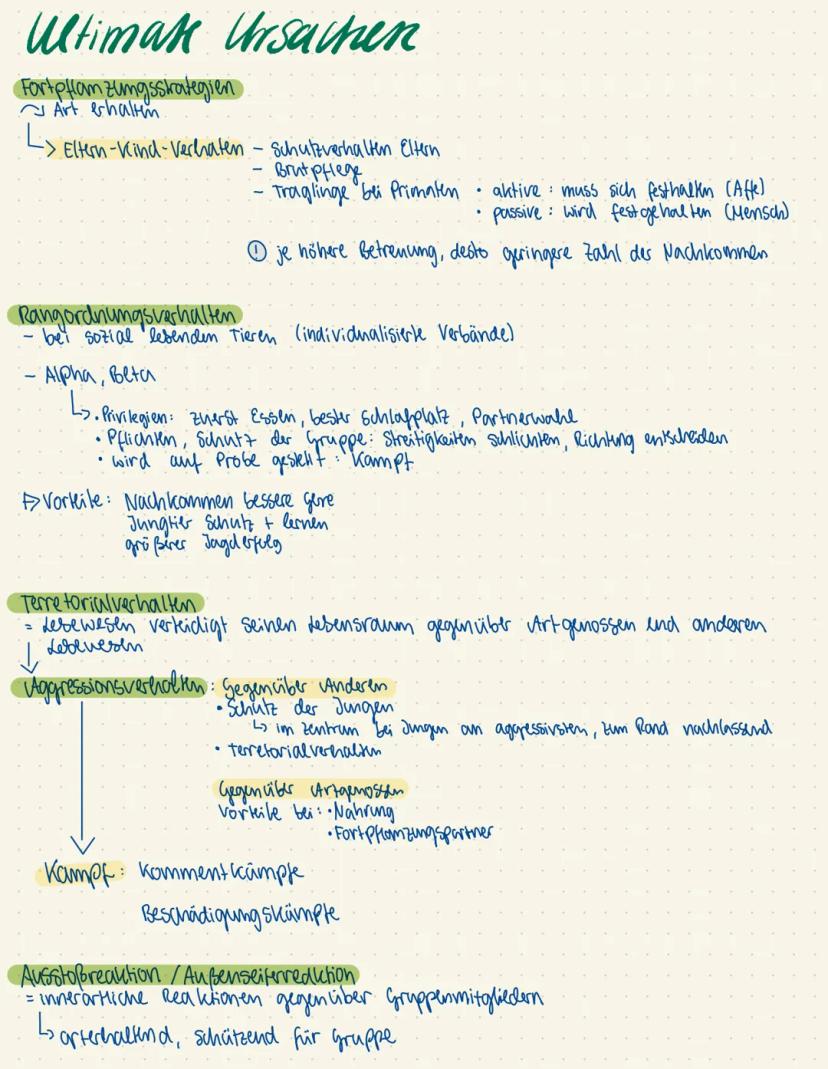 Ultimate Ursachen
Fortpflanzungsstrategien
↷ Art erhalten
↳ Eltern-Kind-Verhalten - Schutzverhalten Eltern
- Brutpflege
- Traglinge bei Primaten • aktive: muss sich festhalten (Affe)
• passive: wird festgehalten (Mensch)
! je höhere Betreuung, desto geringere Zahl der Nachkommen
Rangordnungsverhalten
- bei sozial lebenden Tieren (individualisierte Verbände)
- Alpha, Beta
↳ • Privilegien: zuerst Essen, bester Schlafplatz, Partnerwahl
• Pflichten, Schutz der Gruppe: Streitigkeiten schlichten, Richtung entscheiden
• wird auf Probe gestellt: Kampf
⇒ Vorteile: Nachkommen bessere Gene
Jungtier Schutz + lernen
größerer Jagderfolg
Territorialverhalten
= Lebewesen verteidigt seinen Lebensraum gegenüber Artgenossen und anderen
↓ Lebewesen
Aggressionsverhalten: Gegenüber Anderen
• Schutz der Jungen
↳ im Zentrum bei Jungen am aggressivsten, zum Rand nachlassend
• Territorialverhalten
Gegenüber Artgenossen
Vorteile bei: • Nahrung
• Fortpflanzungspartner
Kampf: Kommentkämpfe
Beschädigungskämpfe
Ausstoßreaktion / Außenseiterreaktion
= innerartliche Reaktionen gegenüber Gruppenmitgliedern
↳ arterhaltend, schützend für Gruppe